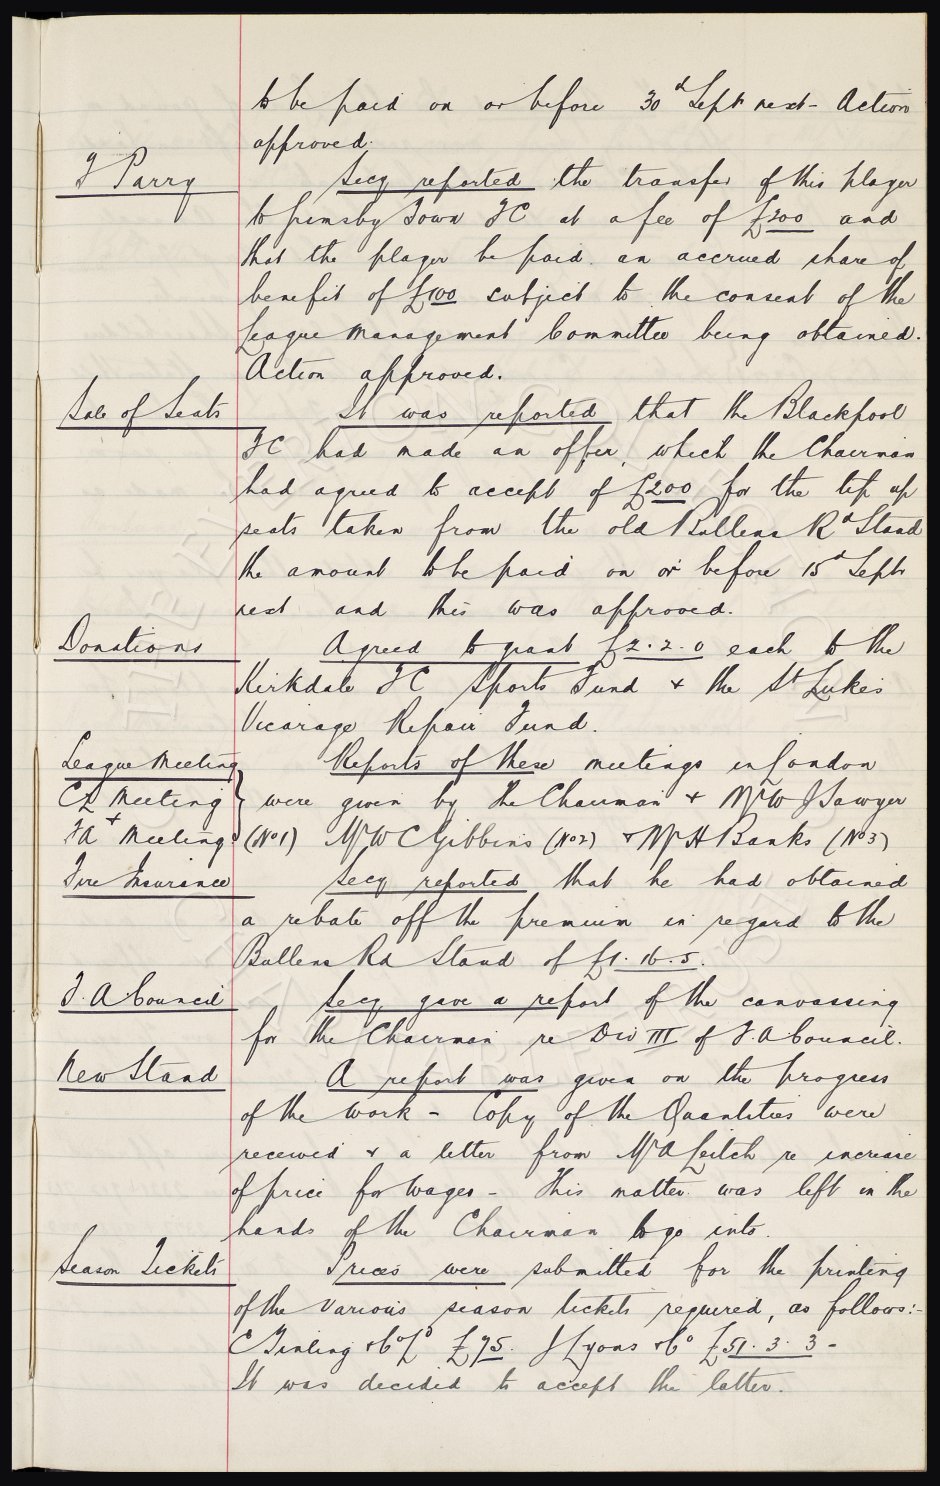 to be paid on or before 30d Sept next - Action
approved.
F Parry
Secy reported the transfer of this player
to Grimsby Town FC at a fee of £200 and
that the player be paid an accrued share of
benefit of £100 subject to the consent of the
League Management Committee being obtained.
Action approved.
Sale of Seats
It was reported that the Blackpool
FC had made an offer, which the Chairman
had agreed to accept of £200 for the tip up
seats taken from the old Bullens Rd Stand
the amount to be paid on or before 15d Sept
next and this was approved.
Donations
Agreed to grant £2.2.0 each to the
Kirkdale FC Sports Fund & the St Lukes
Vicarage Repair Fund.
League Meeting
CL Meeting
FA + Meeting
Reports of these meetings in London
were given by the Chairman & Mr W J Sawyer
(No1) Mr W C Gibbins (No2) & Mr H Banks (No3)
Fire Insurance
Secy reported that he had obtained
a rebate off the premium in regard to the
Bullens Rd Stand of £1.16.5.
F.A Council
Secy gave a report of the canvassing
for the Chairman re Div III of F.A Council.
New Stand
A report was given on the progress
of the work - Copy of the Quantities were
received & a letter from Mr A Leitch re increase
of price for wages - This matter was left in the
hands of the Chairman to go into.
Season Tickets
Prices were submitted for the printing
of the various season tickets required, as follows:-
C Tinling & Co Ld £75. J Lyons & Co £51.3.3 -
It was decided to accept the latter.